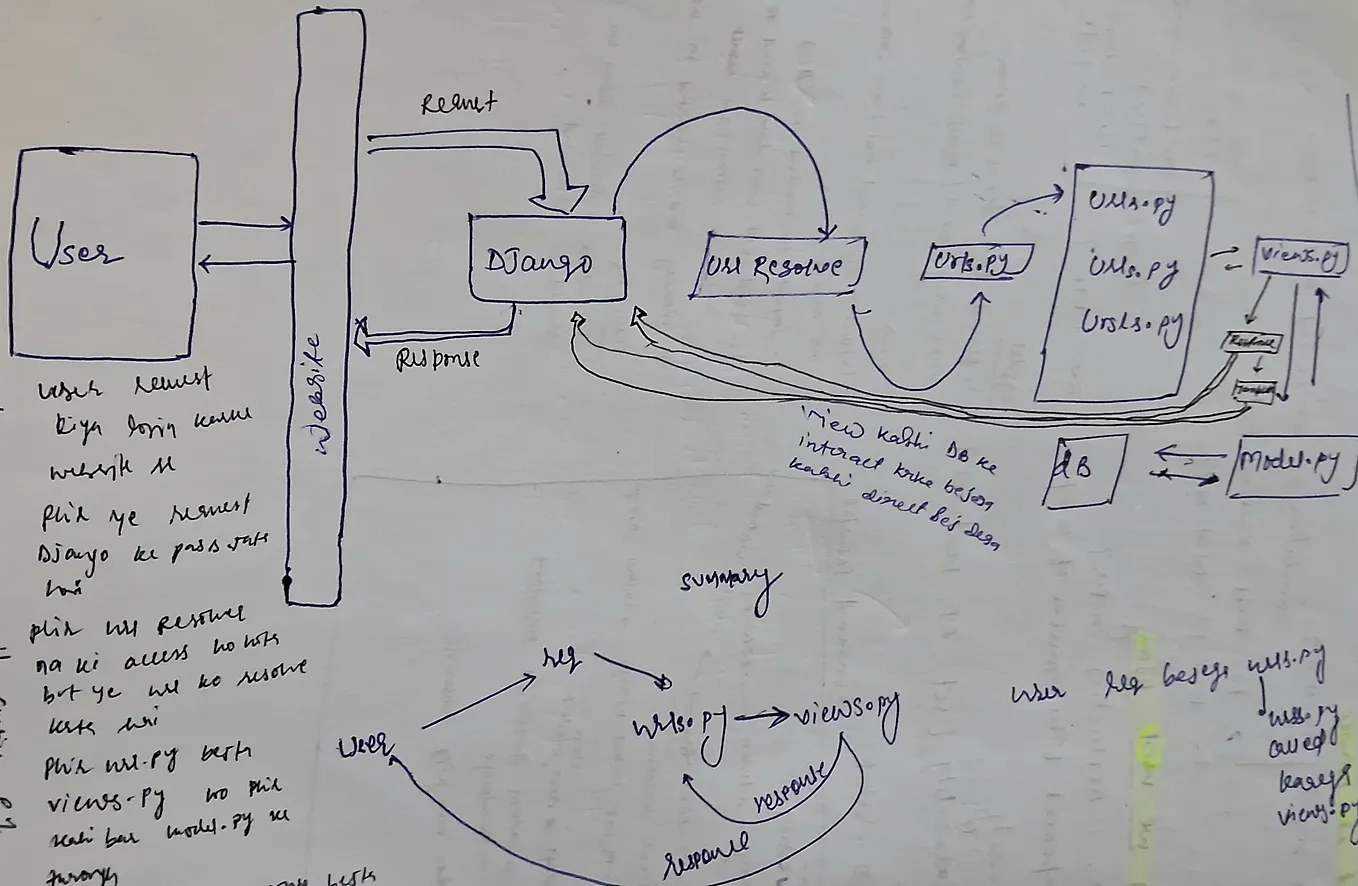 Request
User
Website
Django
Url Resolve
Urls.py
Urls.py
Urls.py
Urls.py
views.py
Response
Response
Template
dB
Model.py
view kabhi DB ke
interact krke bejega
kabhi direct bej dega
user request
kiya login karke
website se
phir ye request
Django ke pass jate
hai
phir url resolve
na ki access ho
but ye url ko resolve
karta hai
phir url.py
views.py wo phir
kahi bar model.py ke
through
Summary
req
user
urls.py
views.py
response
response
user req bejega urls.py
urls.py
called
karega
views.py